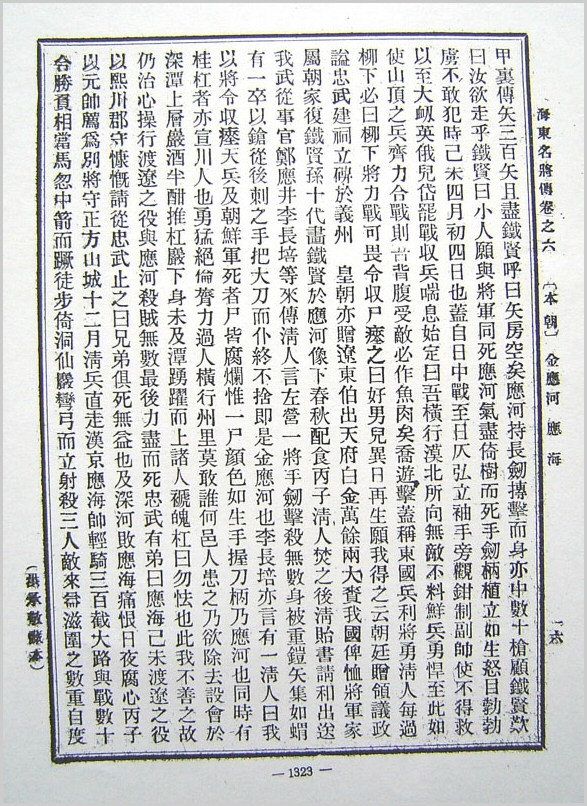 海東名將傳卷之六 〔本朝〕 金應河 應海
一六
甲裏傳矢三百矢且盡鐵賢呼曰矢房空矣應河持長劒搏擊而身亦中數十槍顧鐵賢歎
曰汝欲走乎鐵賢曰小人願與將軍同死應河氣盡倚樹而死手劒柄植立如生怒目勃勃
虜不敢犯時己未四月初四日也蓋自日中戰至日仄弘立袖手旁觀鉗制副帥使不得救
以至大衂英俄兒岱罷戰收兵喘息始定曰吾橫行漠北所向無敵不料鮮兵勇悍至此如
使山頂之兵齊力合戰則吾背腹受敵必作魚肉矣喬遊擊蓋稱東國兵利將勇淸人每過
柳下必曰柳下將力戰可畏令收尸瘞之曰好男兒異日再生願我得之云朝廷贈領議政
謚忠武建祠立碑於義州 皇朝亦贈遼東伯出天府白金萬餘兩大賚我國俾恤將軍家
屬朝家復鐵賢孫十代畵鐵賢於應河像下春秋配食丙子淸人焚之後淸貽書請和出送
我武從事官鄭應井李長培等來傳淸人言左營一將手劒擊殺無數身被重鎧矢集如蝟
有一卒以鎗從後刺之手把大刀而仆終不捨即是金應河也李長培亦言有一淸人曰我
以將令收瘞天兵及朝鮮軍死者尸皆腐爛惟一尸顔色如生手握刀柄乃應河也同時有
桂杠者亦宣川人也勇猛絕倫膂力過人橫行州里莫敢誰何邑人患之乃欲除去設會於
深潭上層嚴酒半酣推杠嚴下身未及潭踴躍而上諸人褫魄杠曰勿怯也此我不善之故
仍治心操行渡遼之役與應河殺賊無數最後力盡而死忠武有弟曰應海己未渡遼之役
以熙川郡守慷慨請從忠武止之曰兄弟俱死無益也及深河敗應海痛恨日夜腐心丙子
以元帥薦爲別將守正方山城十二月淸兵直走漢京應海帥輕騎三百截大路與戰數十
合勝負相當馬忽中箭而蹶徒步倚洞仙巖彎弓而立射殺三人敵來益滋圍之數重自度
— 1323 —